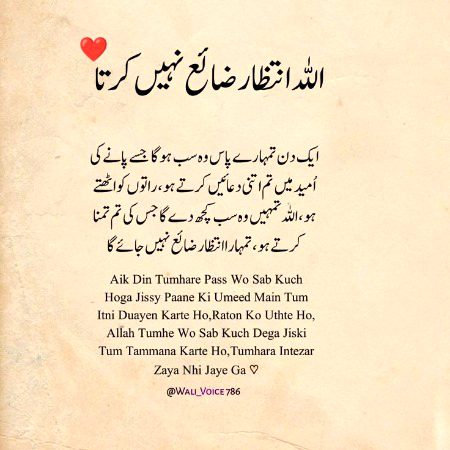 اللہ انتظار ضائع نہیں کرتا
ایک دن تمہارے پاس وہ سب ہو گا جسے پانے کی
اُمید میں تم اتنی دعائیں کرتے ہو، راتوں کو اٹھتے
ہو، اللہ تمہیں وہ سب کچھ دے گا جس کی تم تمنا
کرتے ہو، تمہارا انتظار ضائع نہیں جائے گا
Aik Din Tumhare Pass Wo Sab Kuch
Hoga Jissy Paane Ki Umeed Main Tum
Itni Duayen Karte Ho,Raton Ko Uthte Ho,
Allah Tumhe Wo Sab Kuch Dega Jiski
Tum Tammana Karte Ho,Tumhara Intezar
Zaya Nhi Jaye Ga ♡
@Wali_Voice786